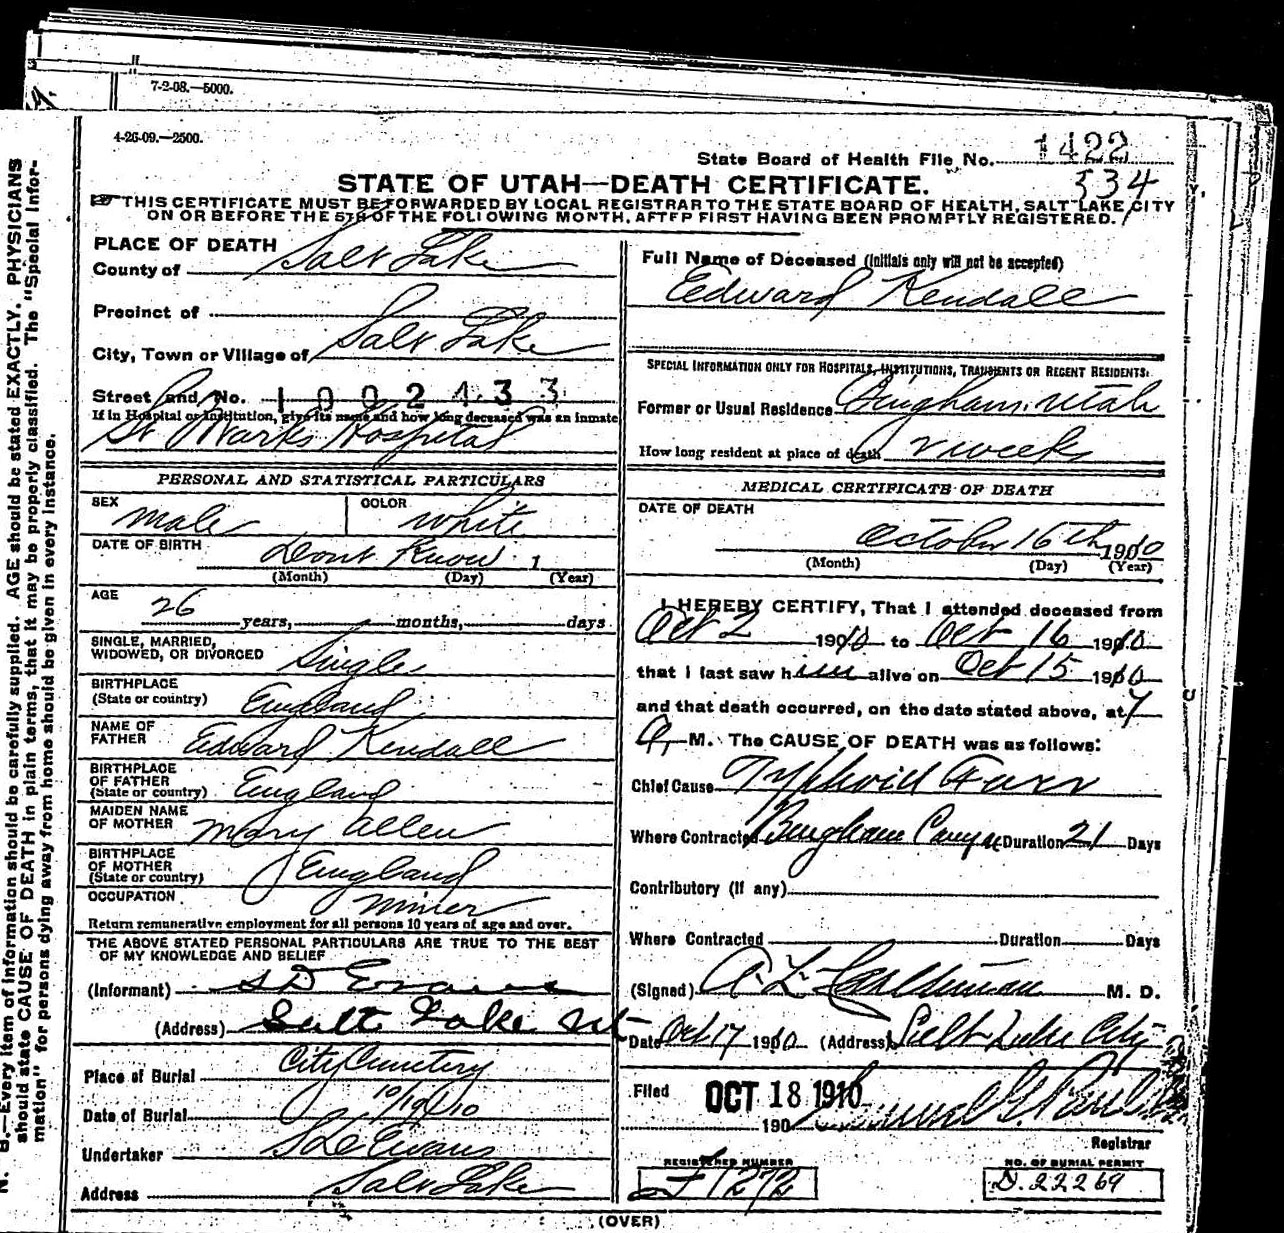 7-2-08.—5000.
4-26-09.—2500.
State Board of Health File No. 1422
534
STATE OF UTAH—DEATH CERTIFICATE.
☞ THIS CERTIFICATE MUST BE FORWARDED BY LOCAL REGISTRAR TO THE STATE BOARD OF HEALTH, SALT LAKE CITY
ON OR BEFORE THE 5TH OF THE FOLLOWING MONTH, AFTER FIRST HAVING BEEN PROMPTLY REGISTERED.
PLACE OF DEATH
County of Salt Lake
Precinct of
City, Town or Village of Salt Lake
Street and No. 1002433
If in Hospital or Institution, give its name and how long deceased was an inmate
St Marks Hospital
PERSONAL AND STATISTICAL PARTICULARS
SEX male COLOR white
DATE OF BIRTH Dont Know 1
(Month) (Day) (Year)
AGE
26 years, months, days
SINGLE, MARRIED,
WIDOWED, OR DIVORCED Single
BIRTHPLACE
(State or country) England
NAME OF
FATHER Edward Kendall
BIRTHPLACE
OF FATHER
(State or country) England
MAIDEN NAME
OF MOTHER Mary Allen
BIRTHPLACE
OF MOTHER
(State or country) England
OCCUPATION miner
Return remunerative employment for all persons 10 years of age and over.
THE ABOVE STATED PERSONAL PARTICULARS ARE TRUE TO THE BEST
OF MY KNOWLEDGE AND BELIEF
(Informant) S D Evans
(Address) Salt Lake Ut
Place of Burial City Cemetery
Date of Burial 10/19/10
Undertaker S D Evans
Address Salt Lake
Full Name of Deceased (Initials only will not be accepted)
Edward Kendall
SPECIAL INFORMATION ONLY FOR HOSPITALS, INSTITUTIONS, TRANSIENTS OR RECENT RESIDENTS:
Former or Usual Residence Bingham, Utah
How long resident at place of death 2 weeks
MEDICAL CERTIFICATE OF DEATH
DATE OF DEATH
October 16th 1910
(Month) (Day) (Year)
I HEREBY CERTIFY, That I attended deceased from
Oct 2 1910 to Oct 16 1910
that I last saw him alive on Oct 15 1910
and that death occurred, on the date stated above, at 7
A. M. The CAUSE OF DEATH was as follows:
Chief Cause Typhoid Fever
Where Contracted Bingham Canyon Duration 21 Days
Contributory (If any)
Where Contracted Duration Days
(Signed) A. L. M. D.
Date Oct 17 1910 (Address) Salt Lake City
Filed OCT 18 1910
190
Registrar
REGISTERED NUMBER
J 1272
NO. OF BURIAL PERMIT
D. 22269
(OVER)
N. B.—Every item of information should be carefully supplied. AGE should be stated EXACTLY. PHYSICIANS
should state CAUSE OF DEATH in plain terms, that it may be properly classified. The "Special Infor-
mation" for persons dying away from home should be given in every instance.